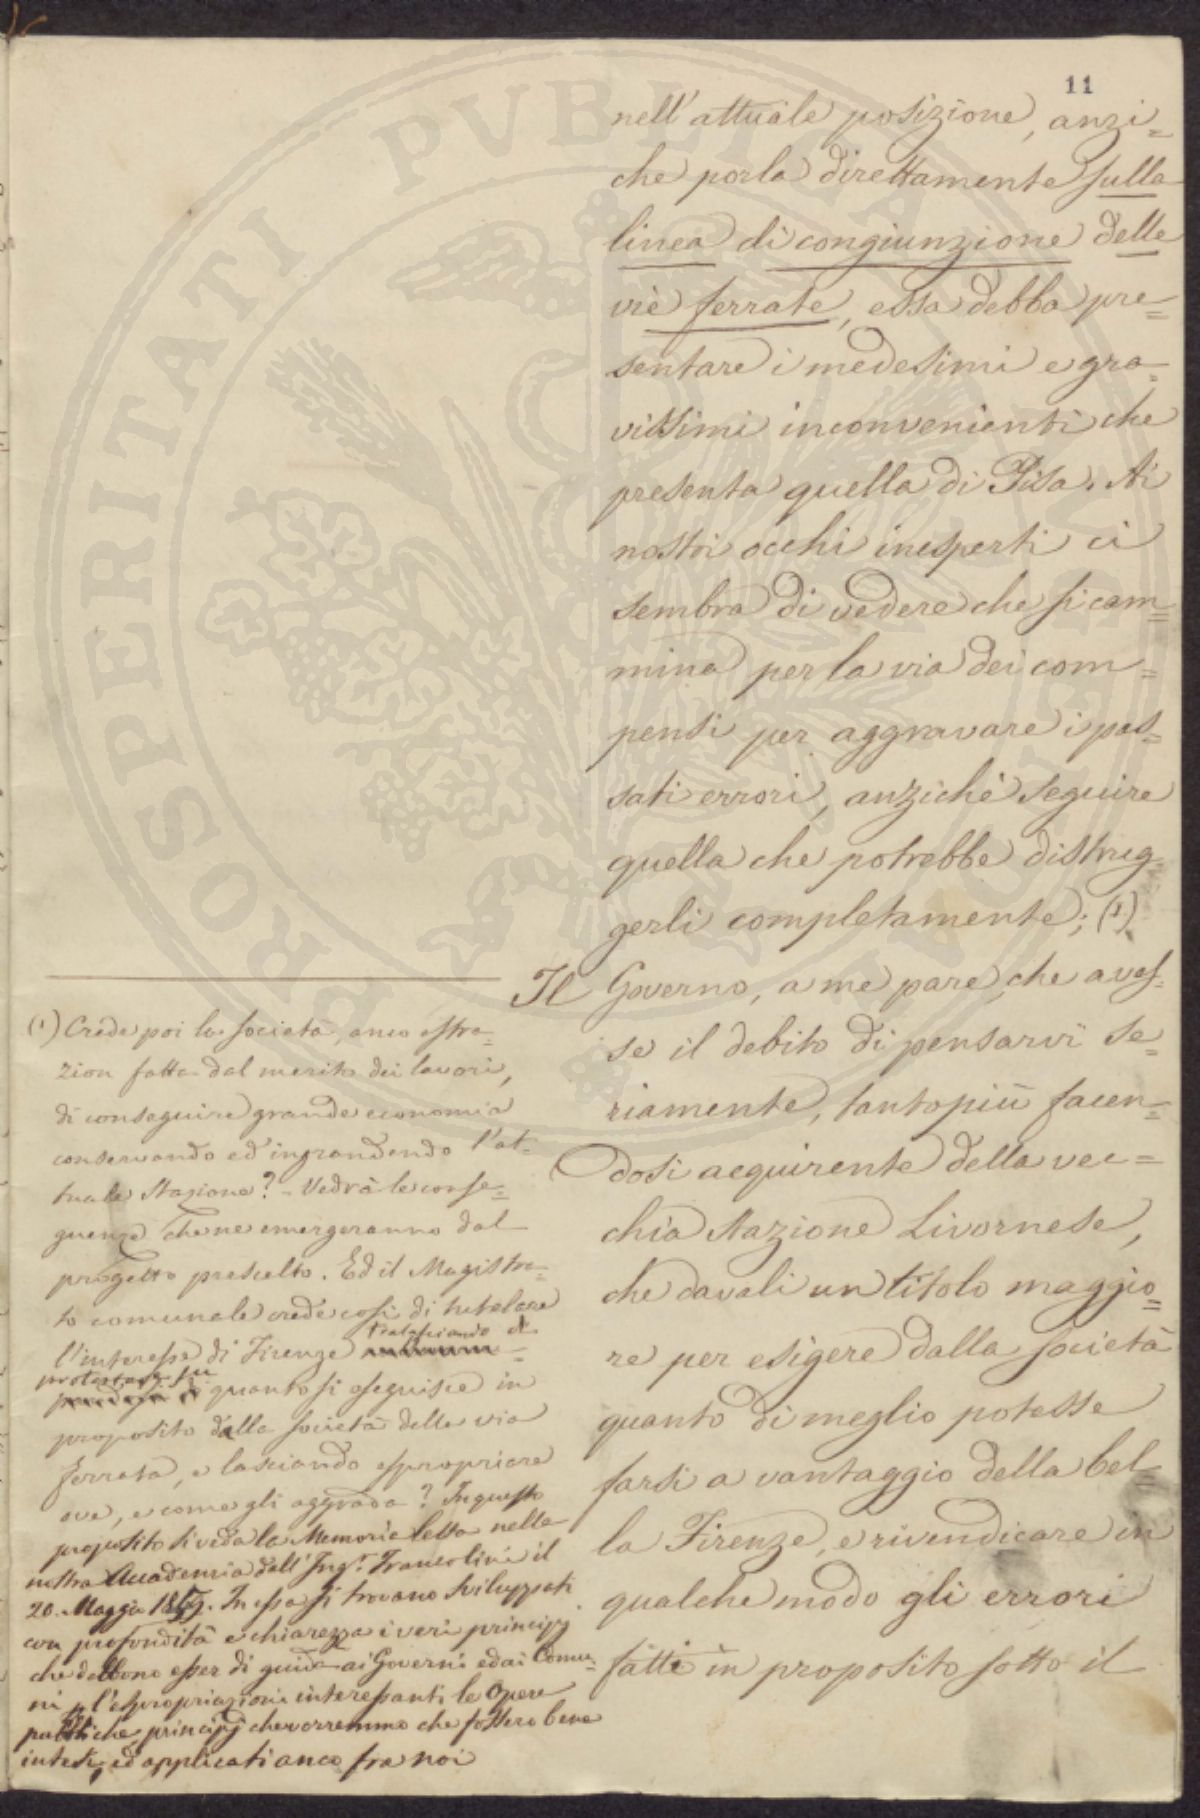 11
nell'attuale posizione, anzi=
che porla direttamente sulla
linea di congiunzione delle
vie ferrate, essa debba pre=
sentare i medesimi e gra=
vissimi inconvenienti che
presenta quella di Pisa. Ai
nostri occhi inesperti ci
sembra di vedere che si cam=
mina per la via dei com=
pensi per aggravare i pas=
sati errori, anzichè seguire
quella che potrebbe distrug
gerli completamente; (1)
Il Governo, a me pare, che aves=
se il debito di pensarvi se=
riamente, tantopiù facen=
dosi acquirente della vec=
chia Stazione Livornese,
che davali un titolo maggio=
re per esigere dalla società
quanto di meglio potesse
farsi a vantaggio della bel=
la Firenze, e rivendicare in
qualche modo gli errori
fatti in proposito sotto il
(1) Crede poi la società, anco astra=
zion fatta dal merito dei lavori,
di conseguire grande economia
conservando ed ingrandendo l'at=
tuale Stazione? - Vedrà le conse=
guenze che ne emergeranno dal
progetto prescelto. Ed il Magistra=
to comunale crede così di tutelare
l'interesse di Firenze tralasciando di
protestare su quanto si eseguisce in
proposito dalla società della via
ferrata, e lasciando espropriare
ove, e come gli aggrada? In questo
proposito si veda la Memoria letta nella
nostra Accademia dall'Ing.r Francolini il
20. Maggio 1859. In essa si trovano sviluppati
con profondità e chiarezza i veri principj
che debbono esser di guida ai Governi ed ai Comu=
ni p l'espropriazioni interessanti le Opere
pubbliche, principj che vorremmo che fossero bene
intesi, ed applicati anco fra noi
PROSPERITATI PVBLICAE